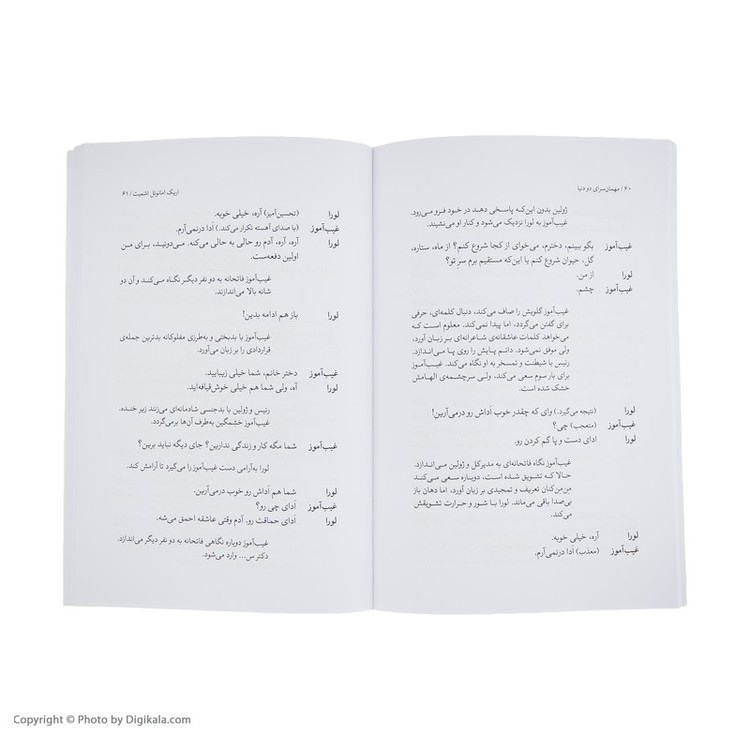 ۶۰ / مهمان‌سرای دو دنیا
ژولین بدون این‌که پاسخی دهد در خود فرو می‌رود.
غیب‌آموز به لورا نزدیک می‌شود و کنار او می‌نشیند.
غیب‌آموز بگو ببینم، دخترم، می‌خوای از کجا شروع کنم؟ از ماه، ستاره،
گل، حیوان شروع کنم یا این‌که مستقیم برم سرِ تو؟
لورا از من.
غیب‌آموز چشم.
غیب‌آموز گلویش را صاف می‌کند، دنبال کلمه‌ای، حرفی
برای گفتن می‌گردد، اما پیدا نمی‌کند. معلوم است که
می‌خواهد کلمات عاشقانه‌ای شاعرانه‌ای بر زبان آورد،
ولی موفق نمی‌شود. دائم پایش را روی پا می‌اندازد.
رئیس با شیطنت و تمسخر به او نگاه می‌کند. غیب‌آموز
برای بار سوم سعی می‌کند، ولی سرچشمه‌ی الهامش
خشک شده است.
لورا (نتیجه می‌گیرد.) وای که چقدر خوب اَداش رو درمی‌آرین!
غیب‌آموز (متعجب) چی؟
لورا ادای دست و پا گم کردن رو.
غیب‌آموز نگاه فاتحانه‌ای به مدیرکل و ژولین می‌اندازد.
حالا که تشویق شده است، دوباره سعی می‌کند
مِن‌مِن‌کنان تعریف و تمجیدی بر زبان آورد، اما دهان باز
بی‌صدا باقی می‌ماند. لورا با شور و حرارت تشویقش
می‌کند.
لورا آره، خیلی خوبه.
غیب‌آموز (معذب) ادا درنمی‌آرم.
اریک امانوئل اشمیت / ۶۱
لورا (تحسین‌آمیز) آره، خیلی خوبه.
غیب‌آموز (با صدای آهسته تکرار می‌کند.) اَدا درنمی‌آرم.
لورا آره، آره، آدم رو حالی به حالی می‌کنه. می‌دونید، برای من
اولین دفعه‌ست.
غیب‌آموز فاتحانه به دو نفر دیگر نگاه می‌کند و آن دو
شانه بالا می‌اندازند.
لورا باز هم ادامه بدین!
غیب‌آموز با بدبختی و به‌طرزی مفلوکانه بدترین جمله‌ی
قراردادی را بر زبان می‌آورد.
غیب‌آموز دختر خانم، شما خیلی زیبایید.
لورا آه، ولی شما هم خیلی خوش‌قیافه‌اید.
رئیس و ژولین با بدجنسی شادمانه‌ای می‌زنند زیر خنده.
غیب‌آموز خشمگین به‌طرف آن‌ها برمی‌گردد.
غیب‌آموز شما مگه کار و زندگی ندارین؟ جای دیگه نباید برین؟
لورا به‌آرامی دست غیب‌آموز را می‌گیرد تا آرامش کند.
لورا شما هم اَداش رو خوب درمی‌آرین.
غیب‌آموز اَدای چی رو؟
لورا اَدای حماقت رو. آدم وقتی عاشقه احمق می‌شه.
غیب‌آموز دوباره نگاهی فاتحانه به دو نفر دیگر می‌اندازد.
دکتر س... وارد می‌شود.
Copyright © Photo by Digikala.com